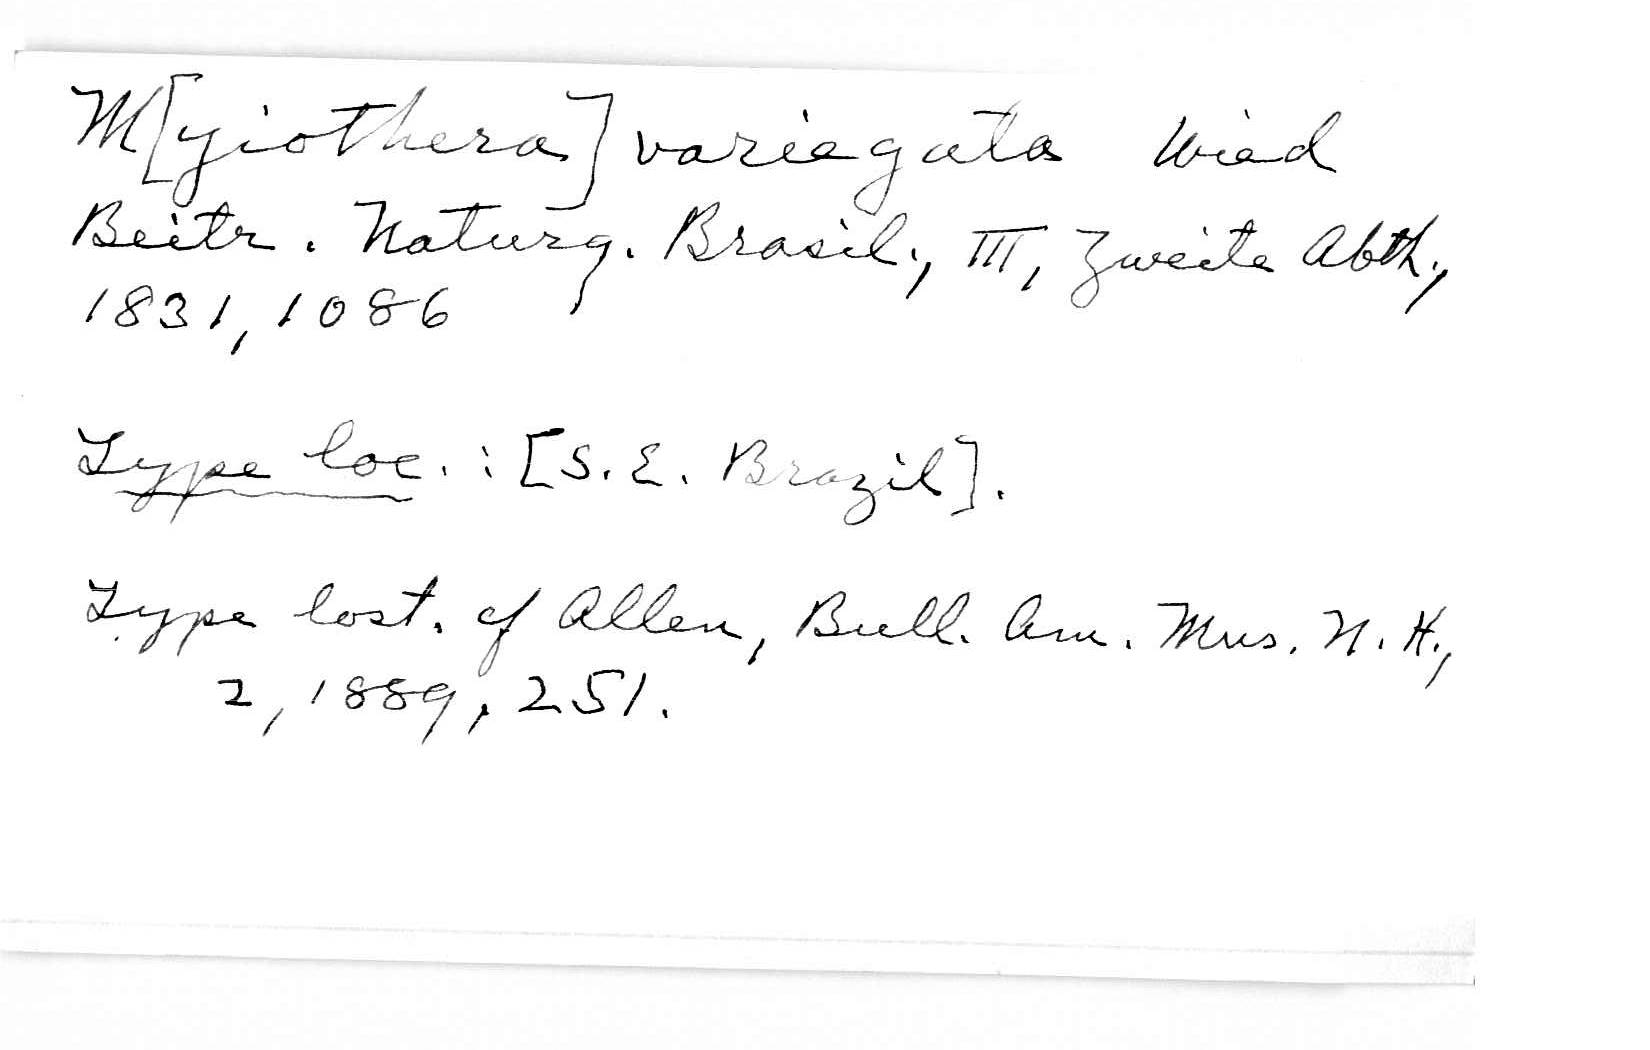 M[yiothera] variegata Wied
Beitr. Naturg. Brasil., III, Zweite Abth.,
1831, 1086
Type loc. : [S. E. Brazil].
Type lost. cf Allen, Bull. Am. Mus. N. H.,
2, 1889, 251.